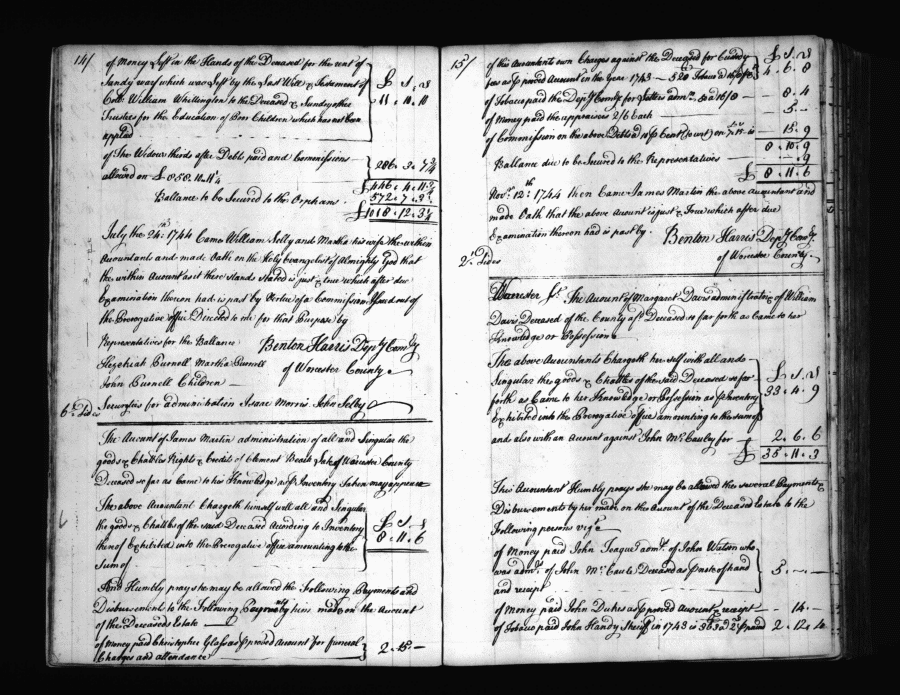 14/
of Money Left in the Hands of the Deceased for the use of
Sundry ways which was Left by the Last Will & Testament of
Coll: William Whittington to the Deceased & Sundry other
Trustees for the Education of Poor Children which has not been
applied
£ S D
11 . 10 . 10
of The Widows thirds after Debts paid and Commissions
allowed on £ 858. 10. 11¼
286. 3. 7¾
£ 446. 4. 11¾
Ballance to be Secured to the Orphans
572. 7. 3½
£ 1018. 12. 3¼
July the 24th 1744 Came William Selby and Martha his wife the within
Accountants and made Oath on the Holy Evangelist of Almighty God that
the within Account as it there stands Stated is just & true which after due
Examination thereon had is past by Vertue of a Commission Issued out of
the Prerogative office Directed to me for that Purpose by
Representatives for the Ballance
Benton Harris Depy Comy
Hezekiah Purnell Martha Purnell
of Worcester County
John Purnell Children
6. Sides
Securetys for administration Isaac Morris John Selby
The Account of James Martin administration of all and Singular the
goods & Chattles Rights & Credits of Clement Beach Late of Worcester County
Deceased so far as Came to his Knowledge as p Inventory taken may appear
The above Accountant Chargeth himself with all and Singular
the goods & Chattles of the said Deceased According to Inventory
thereof Exhibited into the Prerogative office amounting to the
Sum of
£ S D
8. 11. 6
And Humbly prays he may be allowed the Following Payments and
Disbursements to the Following persons by him made on the Account
of the Deceaseds Estate
of money paid Christopher Glass as p proved Account for funeral
Charges and attendance
2. 15. —
15/
of this Accountants own Charges against the Deceased for
as p proved Account in the Year 1743 — 520 Tobacco
£ S D
4. 6. 8
of Tobacco paid the Depy Comy for Letters admn 50 a 16/8
— 8. 4
of money paid the appraisers 2/6 Each
— 5. —
of Commission on the above Debts a 10 p Cent
— 15. 9
8. 10. 9
Ballance due to be Secured to the Representatives
— . 9
£ 8. 11. 6
Novr 12th 1744 then Came James Martin the above Accountant and
made Oath that the above Account is just & True which after due
Examination thereon had is past by.
Benton Harris Depy Comy
of Worcester County
2. Sides
Worcester Ss. The Account of Margaret Davis administratrix of William
Davis Deceased of the County afd Deceased so far forth as Came to her
Knowledge or Possession
The above Accountants Chargeth her self with all and
Singular the goods & Chattles of the said Deceased so far
forth as Came to her Knowledge or Possession as p Inventory
Exhibited into the Prerogative office amounting to the same
£ S D
33. 4. 9
and also with an Account against John Mc Cauley for
2. 6. 6
£ 35. 11. 3
This Accountant Humbly prays she may be allowed the several Payments &
Disbursements by her made on the Account of the Deceaseds Estate to the
Following persons viz
of Money paid John Teague admr of John Watson who
was admr of John Mc Caule Deceased as p note of hand
and receipt
5. — . —
of Money paid John Dukes as p proved Account & receipt
— 14. —
of Tobacco paid John Handy Sheriff in 1743 is
2. 12.